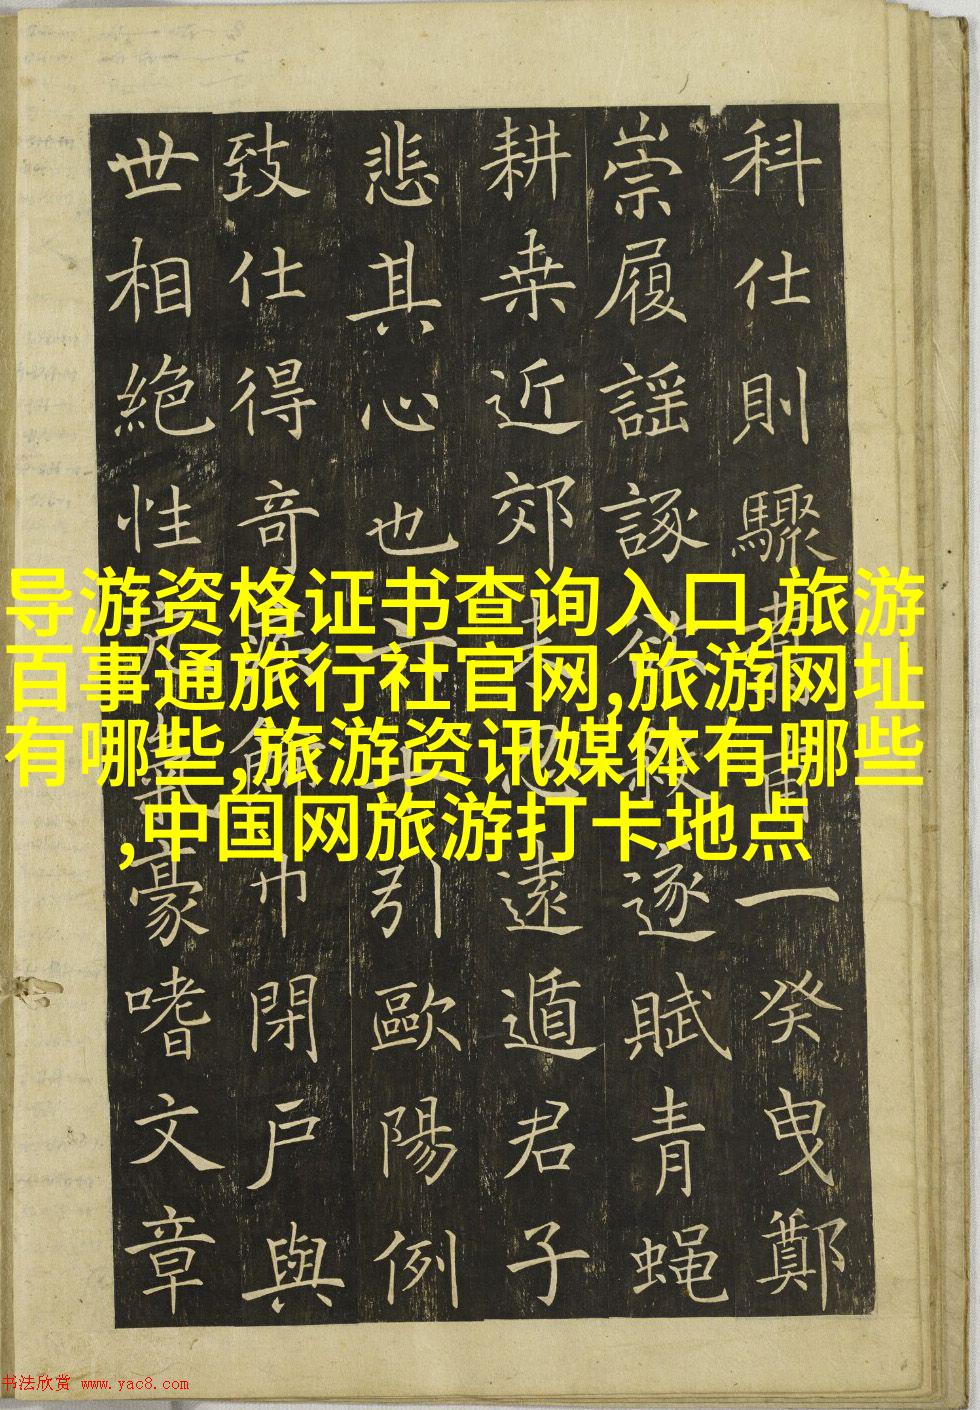 科仕則驟一癸曳鄭
崇履謡諑逐賦青蝇
耕桒近郊遠遁君子
悲其心也引歐陽例
致仕得奇巾閉戸與
世相絶性豪嗜文章
导游资格证书查询入口,旅游
百事通旅行社官网,旅游网址
有哪些,旅游资讯媒体有哪些
,中国网旅游打卡地点
书法欣赏 www.yac8.com